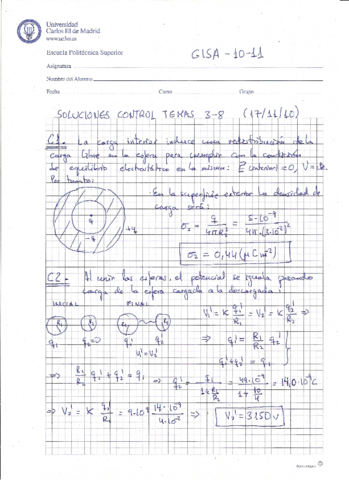 Universidad
Carlos III de Madrid
www.uc3m.es
Escuela Politécnica Superior
GISA - 10-11
Asignatura
Nombre del Alumno
Fecha Curso Grupo
SOLUCIONES CONTROL TEMAS 3-8 (17/11/10)
C1. La carga interior induce una redistribución de la
carga libre en la esfera para cumplir con la condición
de equilibrio electrostático en la misma: E (interior) = 0, V = cte.
Por tanto:
En la superficie exterior la densidad de
carga será:
q
-q
+q
σ₂ = q / 4πR₂² = 5·10⁻⁹ / 4π·(3·10⁻²)²
σ₂ = 0,44 (μC m⁻²)
C2. Al unir las esferas, el potencial se iguala pasando
carga de la esfera cargada a la descargada:
INICIAL FINAL
R₁ R₂ R₁ R₂
q₁ q₂=0 q₁' q₂'
V₁' = V₂'
V₁' = K q₁'/R₁ = V₂' = K q₂'/R₂ ⇒
⇒ q₁' = R₁/R₂ q₂'
q₁' + q₂' = q₁
⇒ R₁/R₂ q₂' + q₂' = q₁ ⇒ q₂' = q₁ / (1 + R₁/R₂) = 49·10⁻⁹ / (1 + 10/4) = 14,0·10⁻⁹ C
⇒ V₂' = K q₂'/R₂ = 9·10⁹ 14·10⁻⁹ / 4·10⁻² ⇒ V₂' = 3150 V